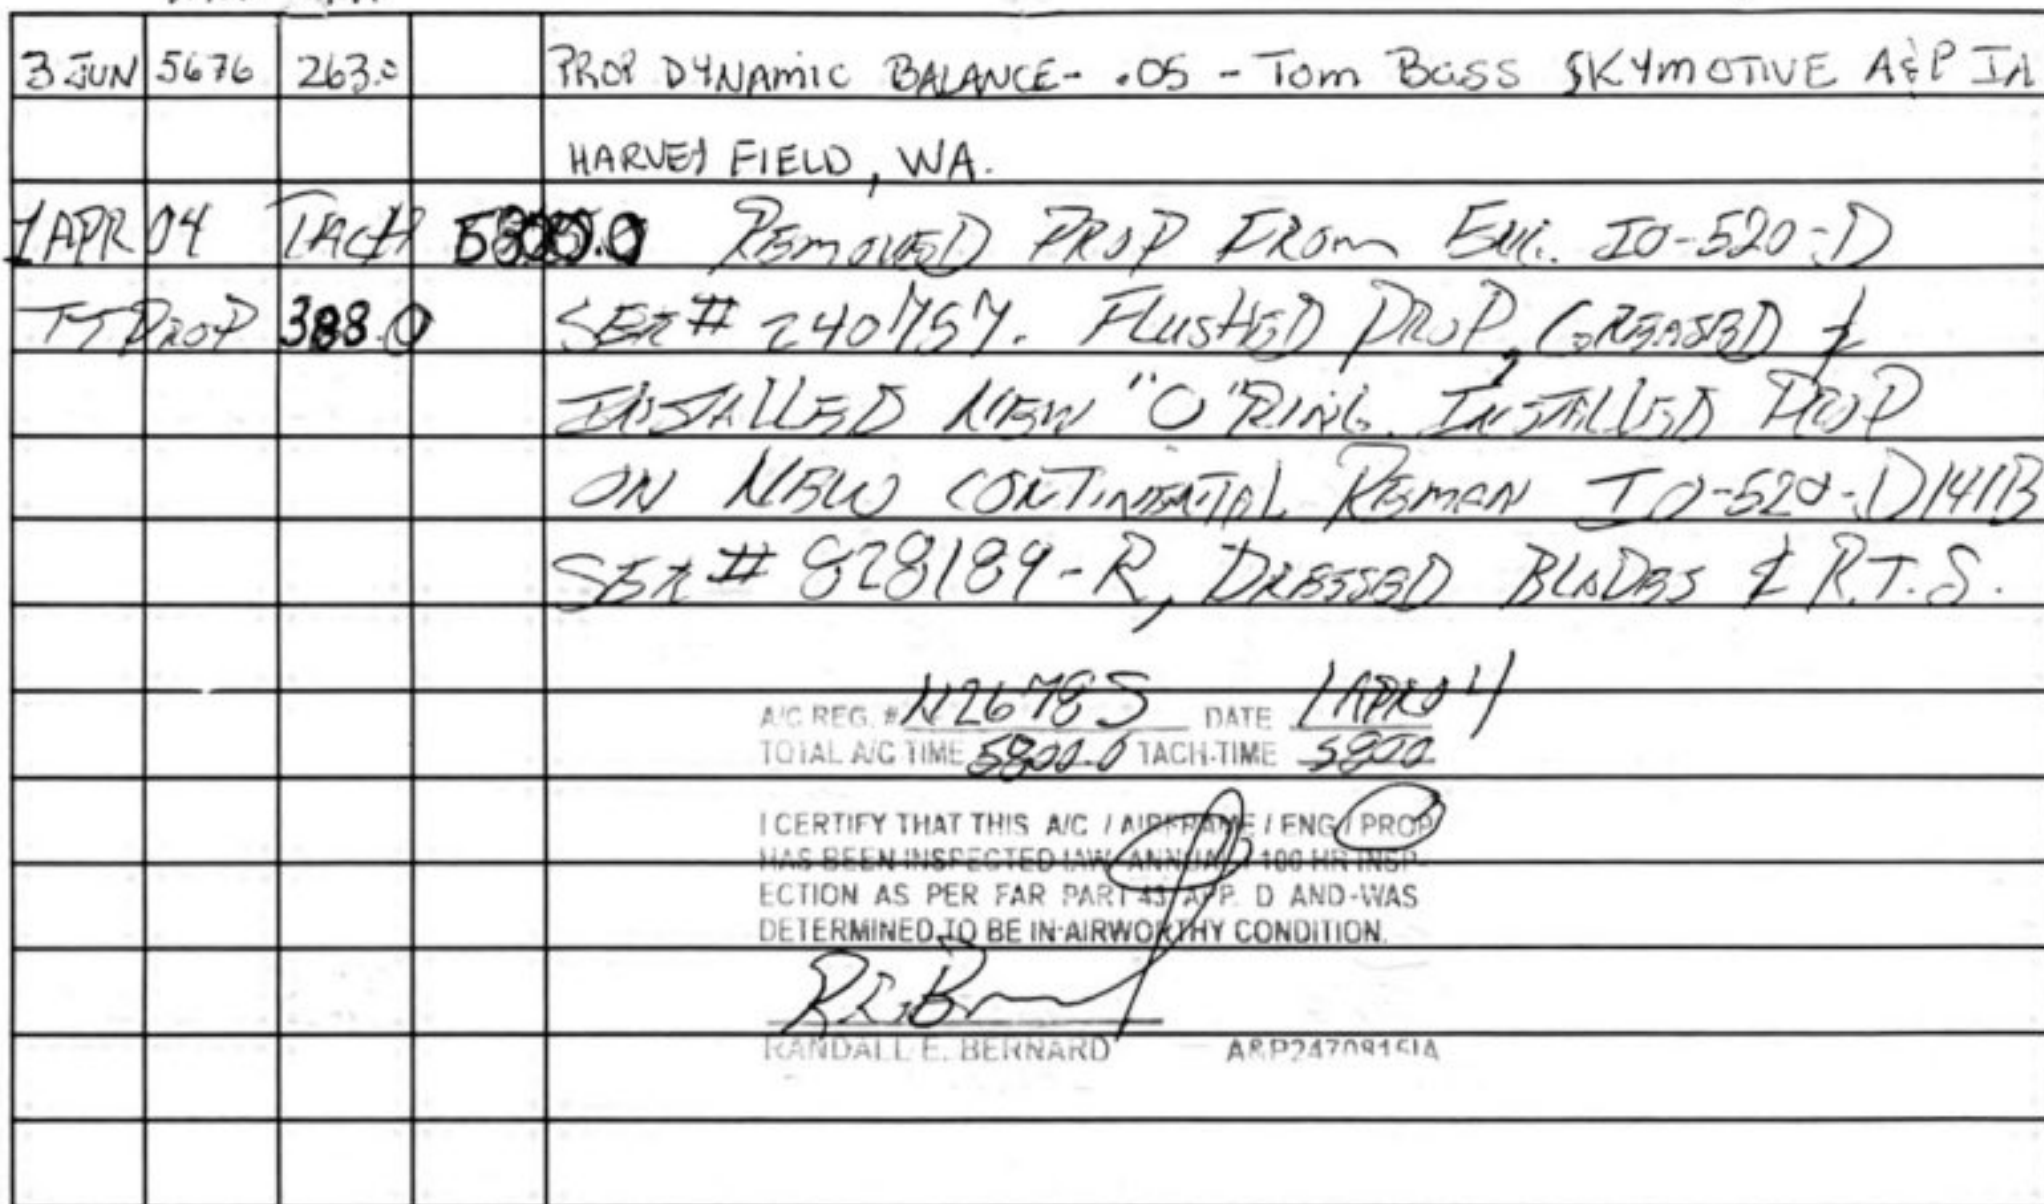 3 JUN 5676 263.0 PROP DYNAMIC BALANCE - .05 - Tom Bass SKYMOTIVE A&P IA
HARVEY FIELD, WA.
1 APR 04 TACH 5800.0 REMOVED PROP FROM ENG. IO-520-D
TT PROP 388.0 SER # 240757. FLUSHED PROP, GREASED &
INSTALLED NEW "O" RING. INSTALLED PROP
ON NEW CONTINENTAL REMAN IO-520-D
SER # 828189-R, DRESSED BLADES & R.T.S.
A/C REG. # N2678S DATE 1 APR 04
TOTAL A/C TIME 5800.0 TACH-TIME 5800
I CERTIFY THAT THIS A/C / AIRFRAME / ENG / PROP
HAS BEEN INSPECTED IAW ANNUAL / 100 HR INSP-
ECTION AS PER FAR PART 43 APP. D AND WAS
DETERMINED TO BE IN AIRWORTHY CONDITION.
RANDALL E. BERNARD